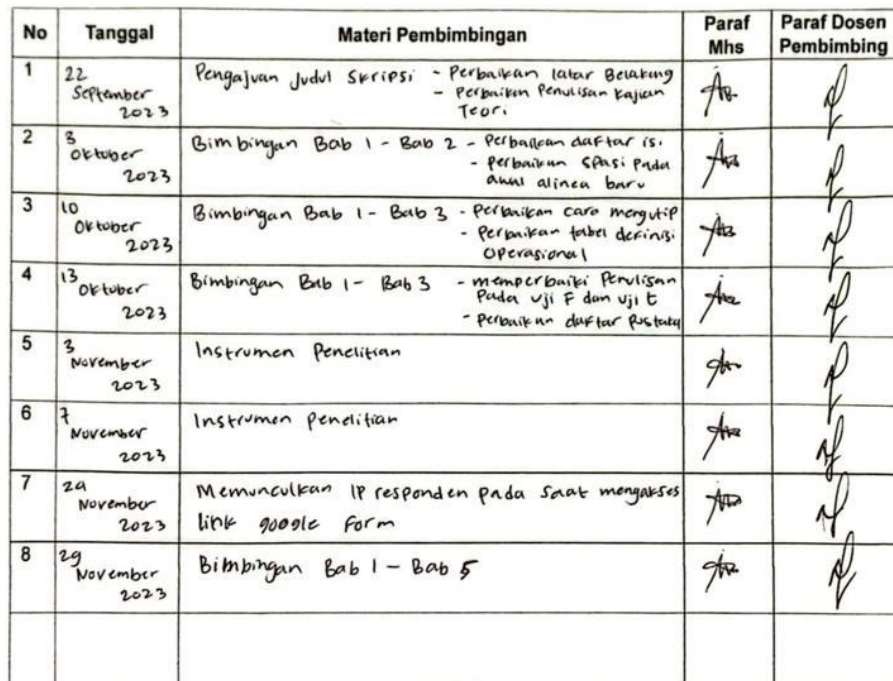 No Tanggal Materi Pembimbingan Paraf Mhs Paraf Dosen Pembimbing
1 22 September 2023 Pengajuan Judul Skripsi - Perbaikan latar Belakang
- Perbaikan Penulisan Kajian
Teori
2 3 Oktober 2023 Bimbingan Bab 1 - Bab 2 - Perbaikan daftar isi
- Perbaikan spasi pada
awal alinea baru
3 10 Oktober 2023 Bimbingan Bab 1 - Bab 3 - Perbaikan cara mengutip
- Perbaikan tabel definisi
Operasional
4 13 Oktober 2023 Bimbingan Bab 1 - Bab 3 - memperbaiki Penulisan
Pada uji F dan uji t
- Perbaikan daftar Pustaka
5 3 November 2023 Instrumen Penelitian
6 7 November 2023 Instrumen Penelitian
7 November 2023 Memunculkan IP responden pada saat mengakses
link google Form
8 29 November 2023 Bimbingan Bab 1 - Bab 5